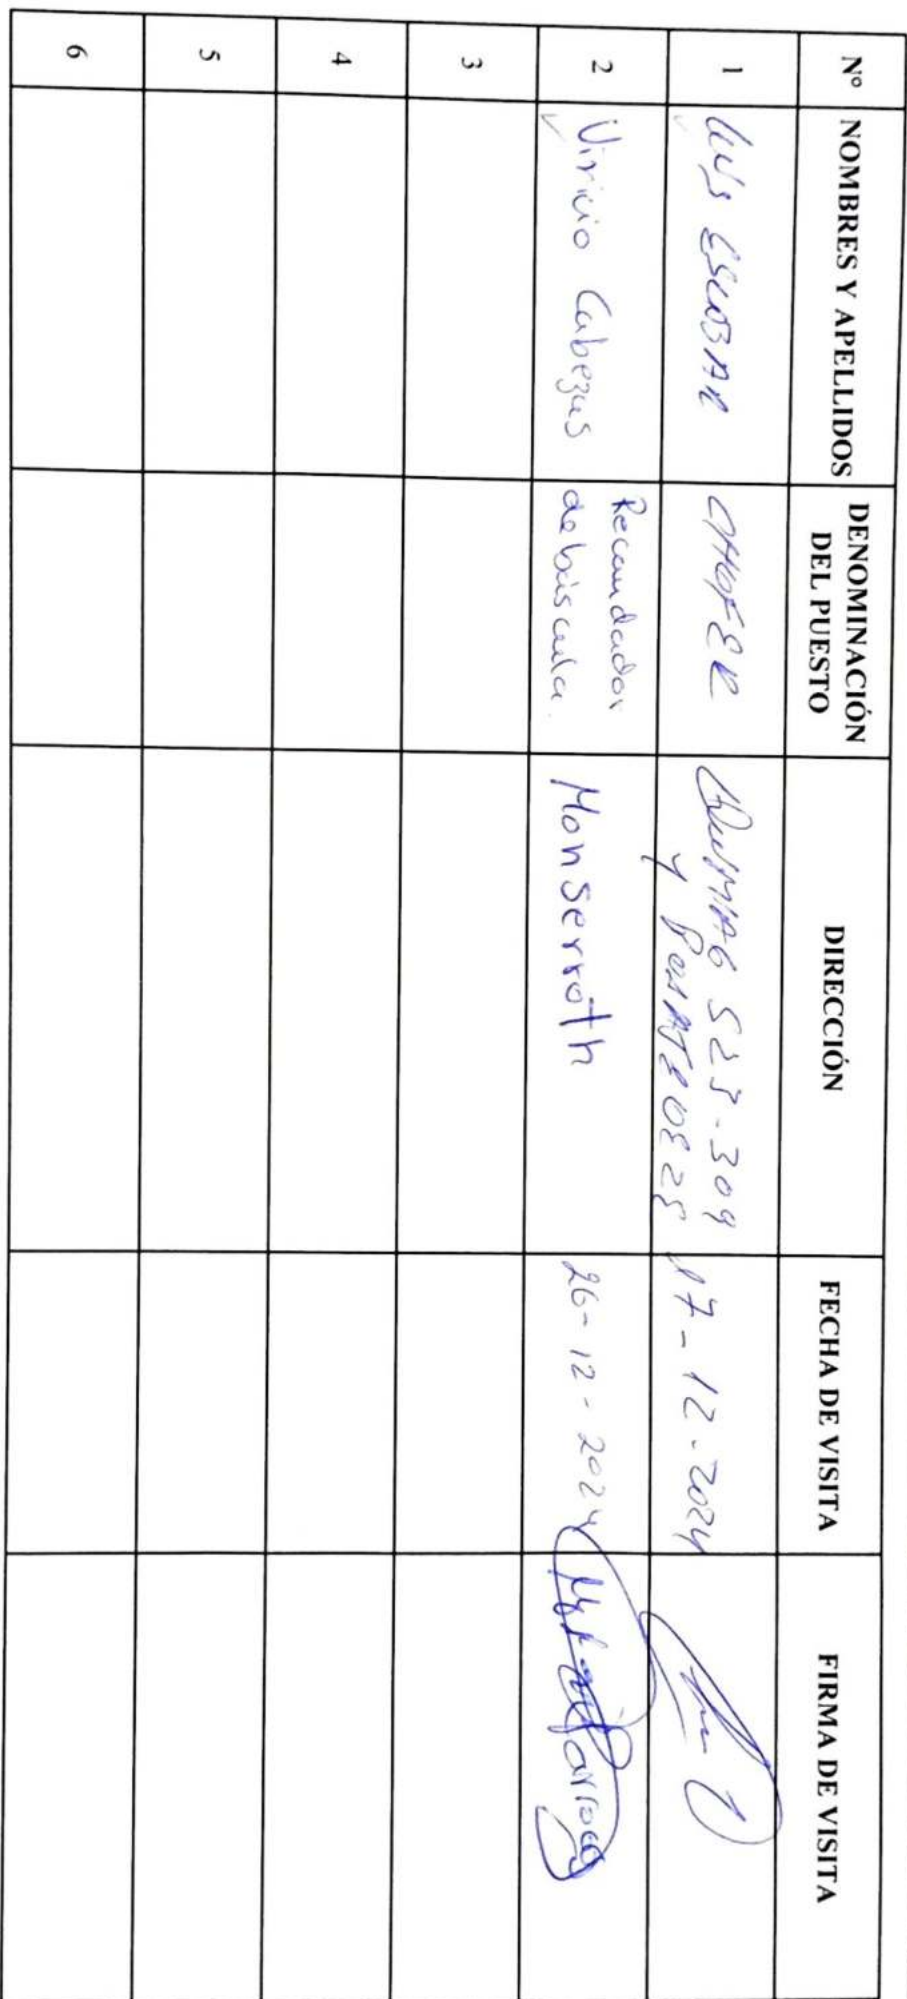 Nº NOMBRES Y APELLIDOS DENOMINACIÓN DEL PUESTO DIRECCIÓN FECHA DE VISITA FIRMA DE VISITA
1 LUIS ESCOBAR CHOFER S23-309 17-12-2024
y
2 Viricio Cabezas Recaudador Monserrath 26-12-2024
de báscula.
3
4
5
6